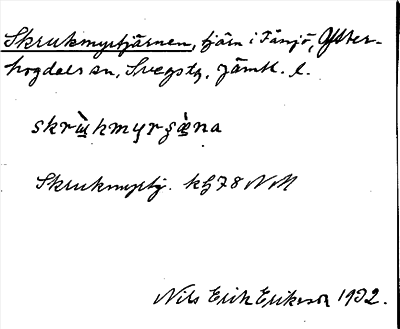 Skrukmyrtjärnen, tjärn i Fånsjö, Ytter-
hogdals sn, Svegs tg, Jämtl. l.
skrùkmyrʂæ̀na
Skrukmyrtj. kg 78 NM
Nils Erik Erikson 1932.